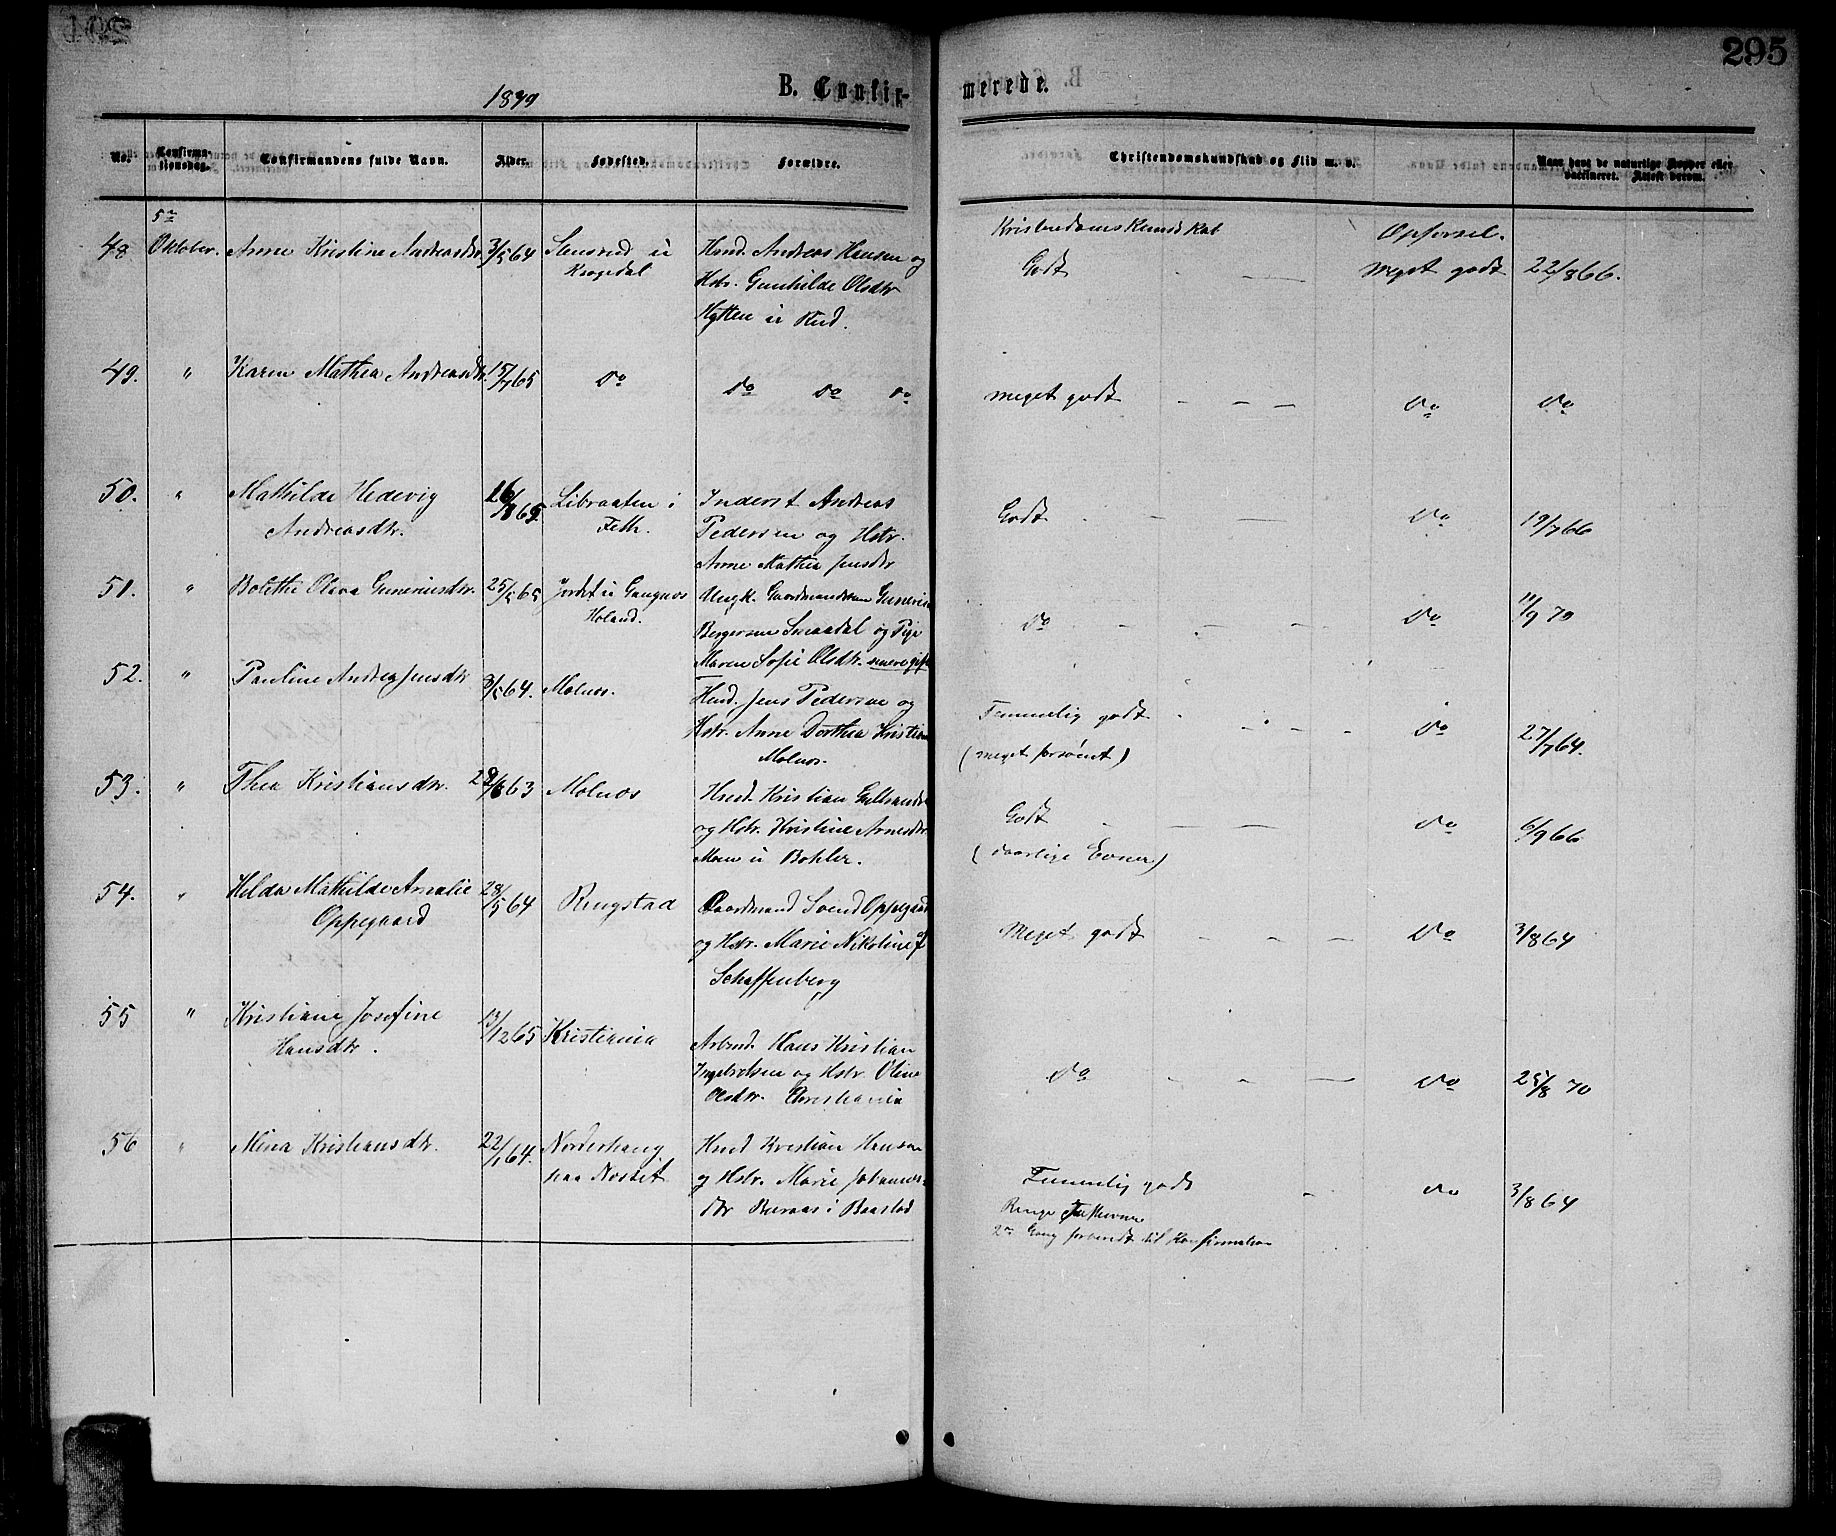 295
1879
B. Confir-
merede.
No.
Confirma-
tionsdag.
Confirmandens fulde Navn.
Alder.
Fødested.
Forældre.
Christendomskundskab og Flid m. v.
Naar havt de naturlige Kopper eller
vaccineret. Attest derom.
5te
48 Oktober. Anne Kristine Andreasdtr. 3/5 64 i Hmd. Andreas Hansen og
Krogedal Hstr. Gunhilde Olsdtr
Hytten i Rud.
Kristendomskundskab Opførsel.
Godt — meget godt 22/8 66.
49. " Karen Mathea Andreasdtr. 15/7 65 Do Do Do Do
meget godt - — — Do Do
50. " Mathilde Hedevig 16/8 65. Libraaten i Inderst Andreas
Andreasdtr. Feth. Pedersen og Hstr.
Anne Mathea Jensdtr
Godt - — — Do 19/7 66
51. " Bolethe Olava Guneriusdtr. 25/5 65 Jordet i Ungk. Gaardmandssøn
Høland. Bergersen Smaadal og Pige
Maren Sofie Olsdtr.
Do - - — - Do 11/9 70
52. " Pauline Andrea Jensdtr 64. Molnes. Hmd. Jens Pedersen og
Hstr. Anne Dorthea Kristian
Molnes.
Temmelig godt - - - Do 27/7 64.
(meget forsømt)
53. " Thea Kristiansdtr. 63 Molnes Hmd. Kristian
og Hstr. Kristine Arnesdtr.
Moen i Bohler.
Godt - — — Do 6/9 66
(daarlige Evner)
54. " Hilda Mathilde Amalie 28/5 64 Ringstad Gaardmand Svend Oppegaard
Oppegaard og Hstr. Marie Nikoline f
Schaffenberg
Meget godt - - — — Do 3/8 64
55 " Kristiane Josefine 65 Kristiania Arbmd. Hans Kristian
Hansdtr. Ingebretsen og Hstr. Oline
Olsdtr. Christiania
Do - - — Do 25/8 70
56 " Mina Kristiansdtr. 22/1 64. Norderhaug Hmd Kristian Hansen
paa Nestet og Hstr. Marie Johannes-
dtr i Baastad
Temmelig godt - Do 3/8 64
Ringe
2den Gang fremmødt til Konfirmation